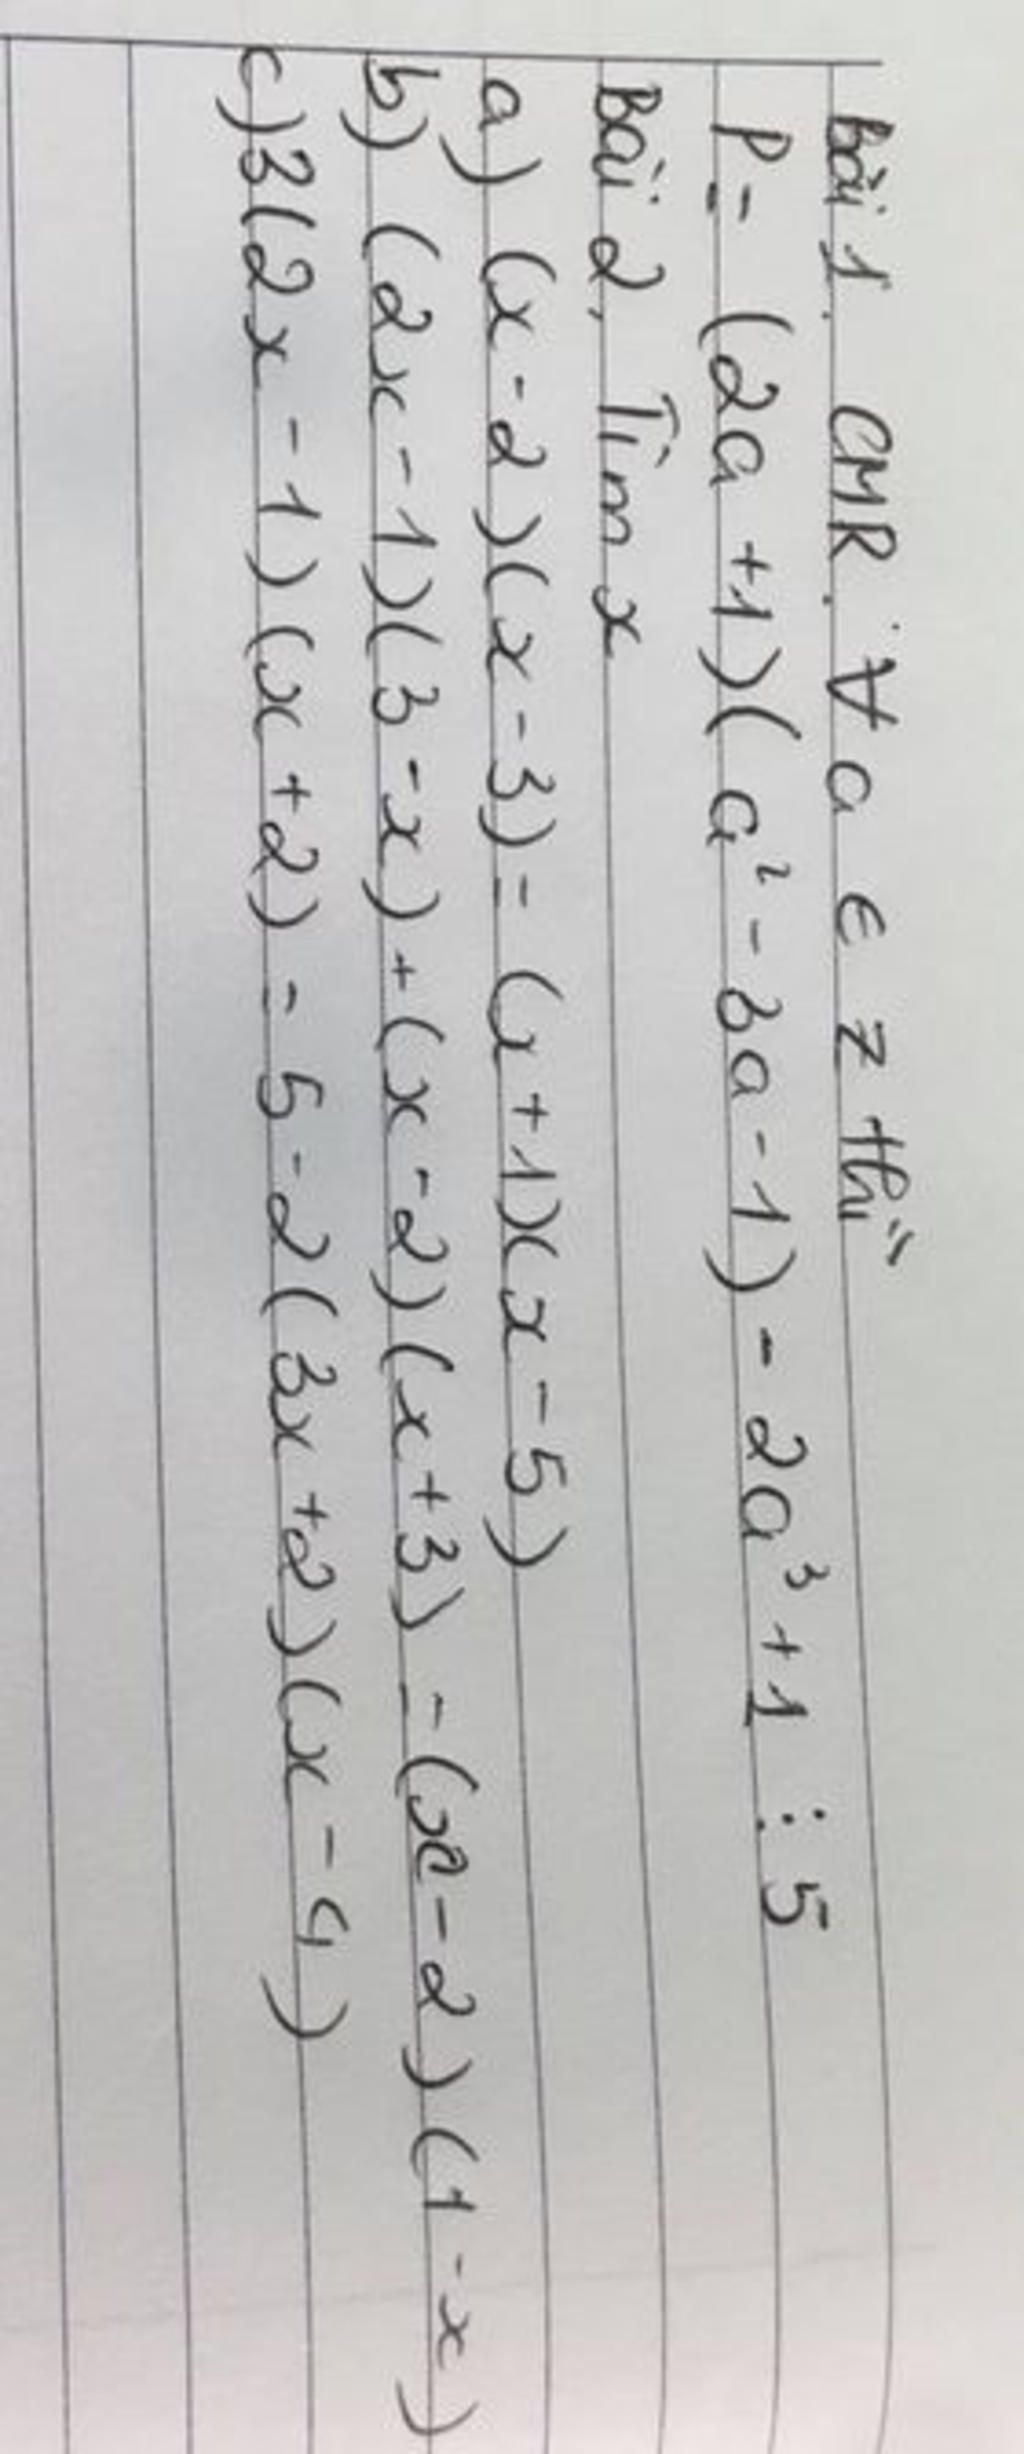 Bài 1. CMR ∀ a ∈ Z thì
P = (2a +1)(a² - 3a - 1) - 2a³ + 1 ⋮ 5
Bài 2, Tìm x
a) (x - 2)(x - 3) = (x + 1)(x - 5)
b) (2x - 1)(3 - x) + (x - 2)(x + 3) = (x - 2)(1 - x)
c) 3(2x - 1)(x + 2) = 5 - 2(3x + 2)(x - 4)